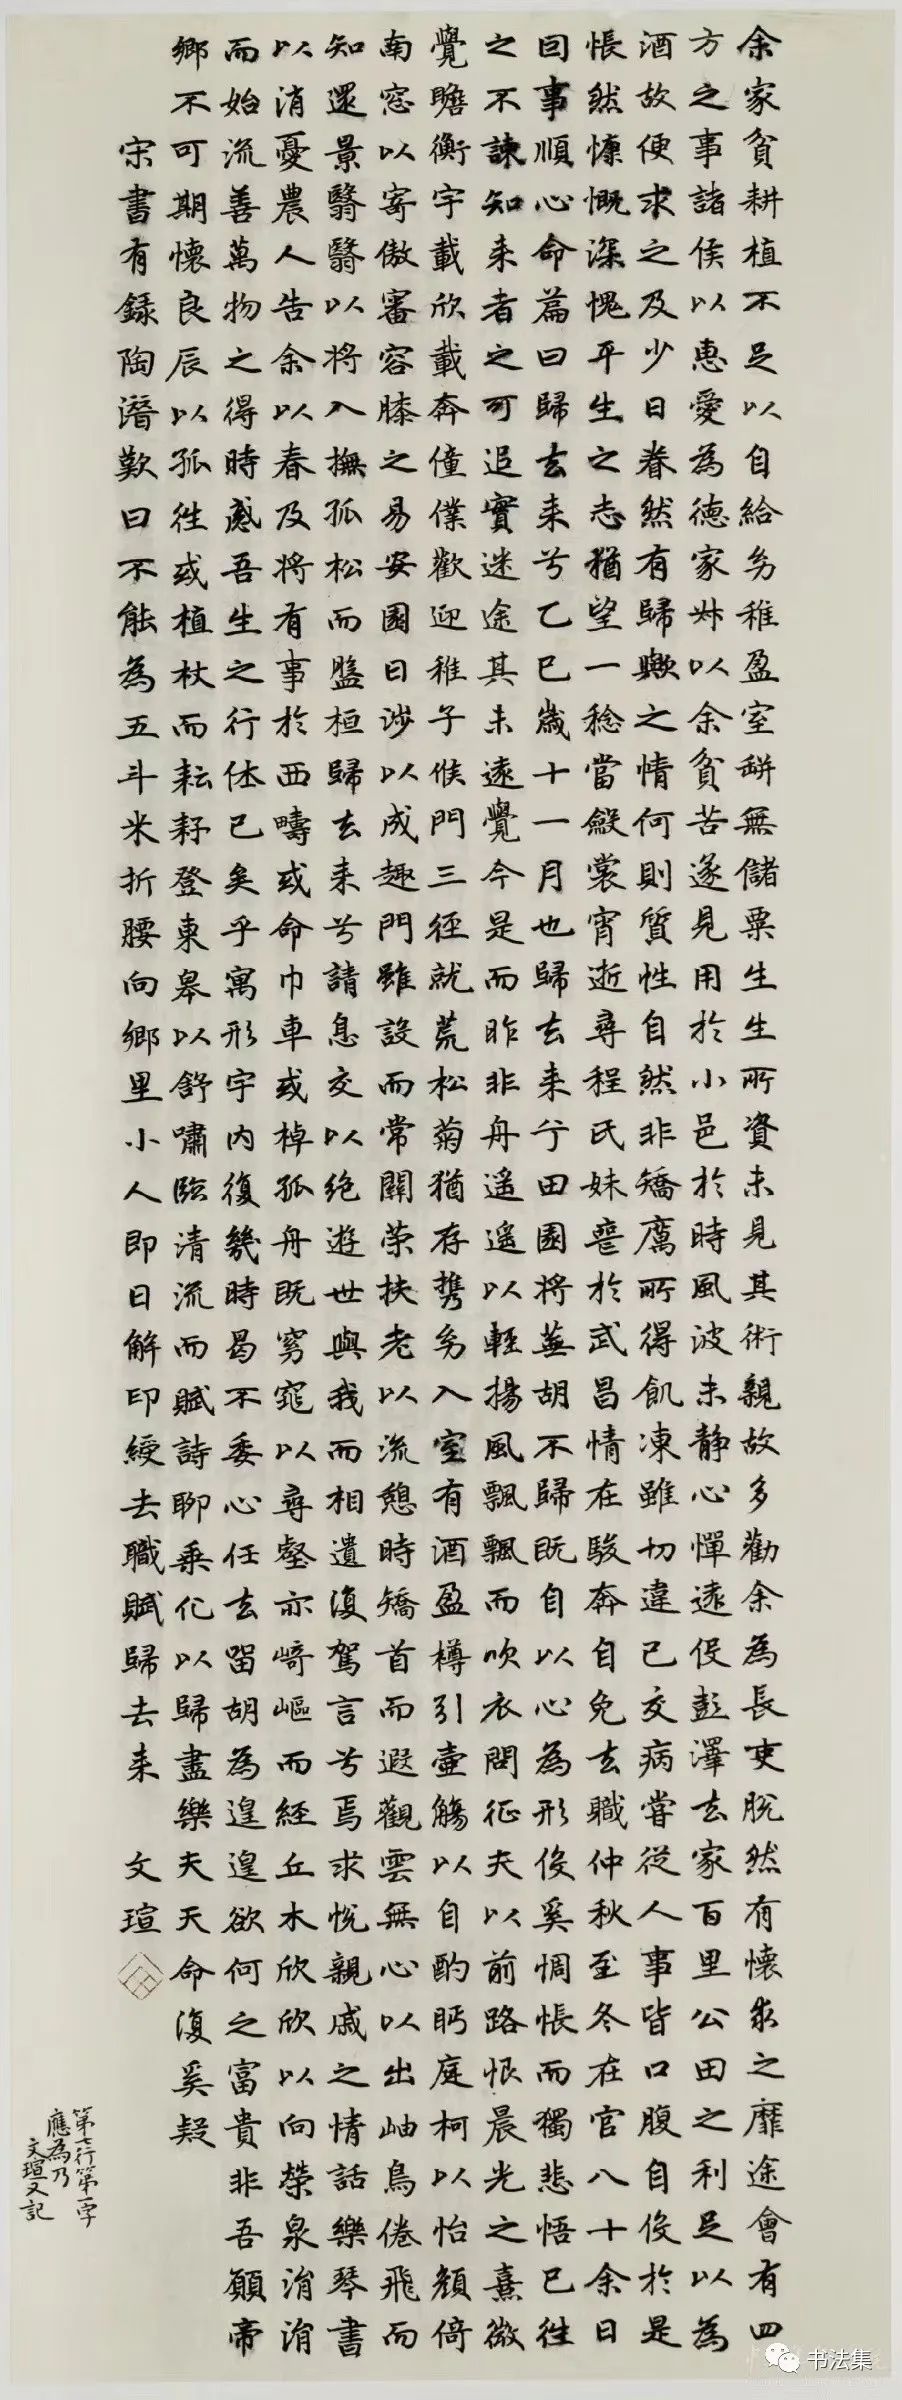 余家貧耕植不足以自給幼稚盈室缾無儲粟生生所資未見其術親故多勸余為長吏脫然有懷求之靡途會有四
方之事諸侯以惠愛為德家叔以余貧苦遂見用於小邑於時風波未靜心憚遠役彭澤去家百里公田之利足以為
酒故便求之及少日眷然有歸歟之情何則質性自然非矯厲所得飢凍雖切違己交病嘗從人事皆口腹自役於是
悵然慷慨深愧平生之志猶望一稔當斂裳宵逝尋程氏妹喪於武昌情在駿奔自免去職仲秋至冬在官八十余日
回事順心命篇曰歸去来兮乙巳歲十一月也歸去来兮田園將蕪胡不歸既自以心為形役奚惆悵而獨悲悟已往
之不諫知来者之可追實迷途其未遠覺今是而昨非舟遥遥以輕揚風飄飄而吹衣問征夫以前路恨晨光之熹微
覺瞻衡宇載欣載奔僮僕歡迎稚子候門三徑就荒松菊猶存攜幼入室有酒盈樽引壺觴以自酌眄庭柯以怡顏倚
南窓以寄傲審容膝之易安園日涉以成趣門雖設而常關荣扶老以流憩時矯首而遐觀雲無心以出岫鳥倦飛而
知還景翳翳以将入撫孤松而盤桓歸去来兮請息交以绝遊世與我而相遺復駕言兮焉求悅親戚之情話樂琴書
以消憂農人告余以春及将有事於西疇或命巾車或棹孤舟既窈窕以尋壑亦崎嶇而經丘木欣欣以向榮泉涓涓
而始流善萬物之得時感吾生之行休已矣乎寓形宇内復幾時曷不委心任去留胡為遑遑欲何之富貴非吾願帝
鄉不可期懷良辰以孤往或植杖而耘耔登東皋以舒嘯臨清流而賦詩聊乘化以歸盡樂夫天命復奚疑
宋書有録陶潛歎曰不能為五斗米折腰向鄉里小人即日解印綬去職賦歸去来 文瑄
第七行第一字
應為乃
文瑄又記
书法集